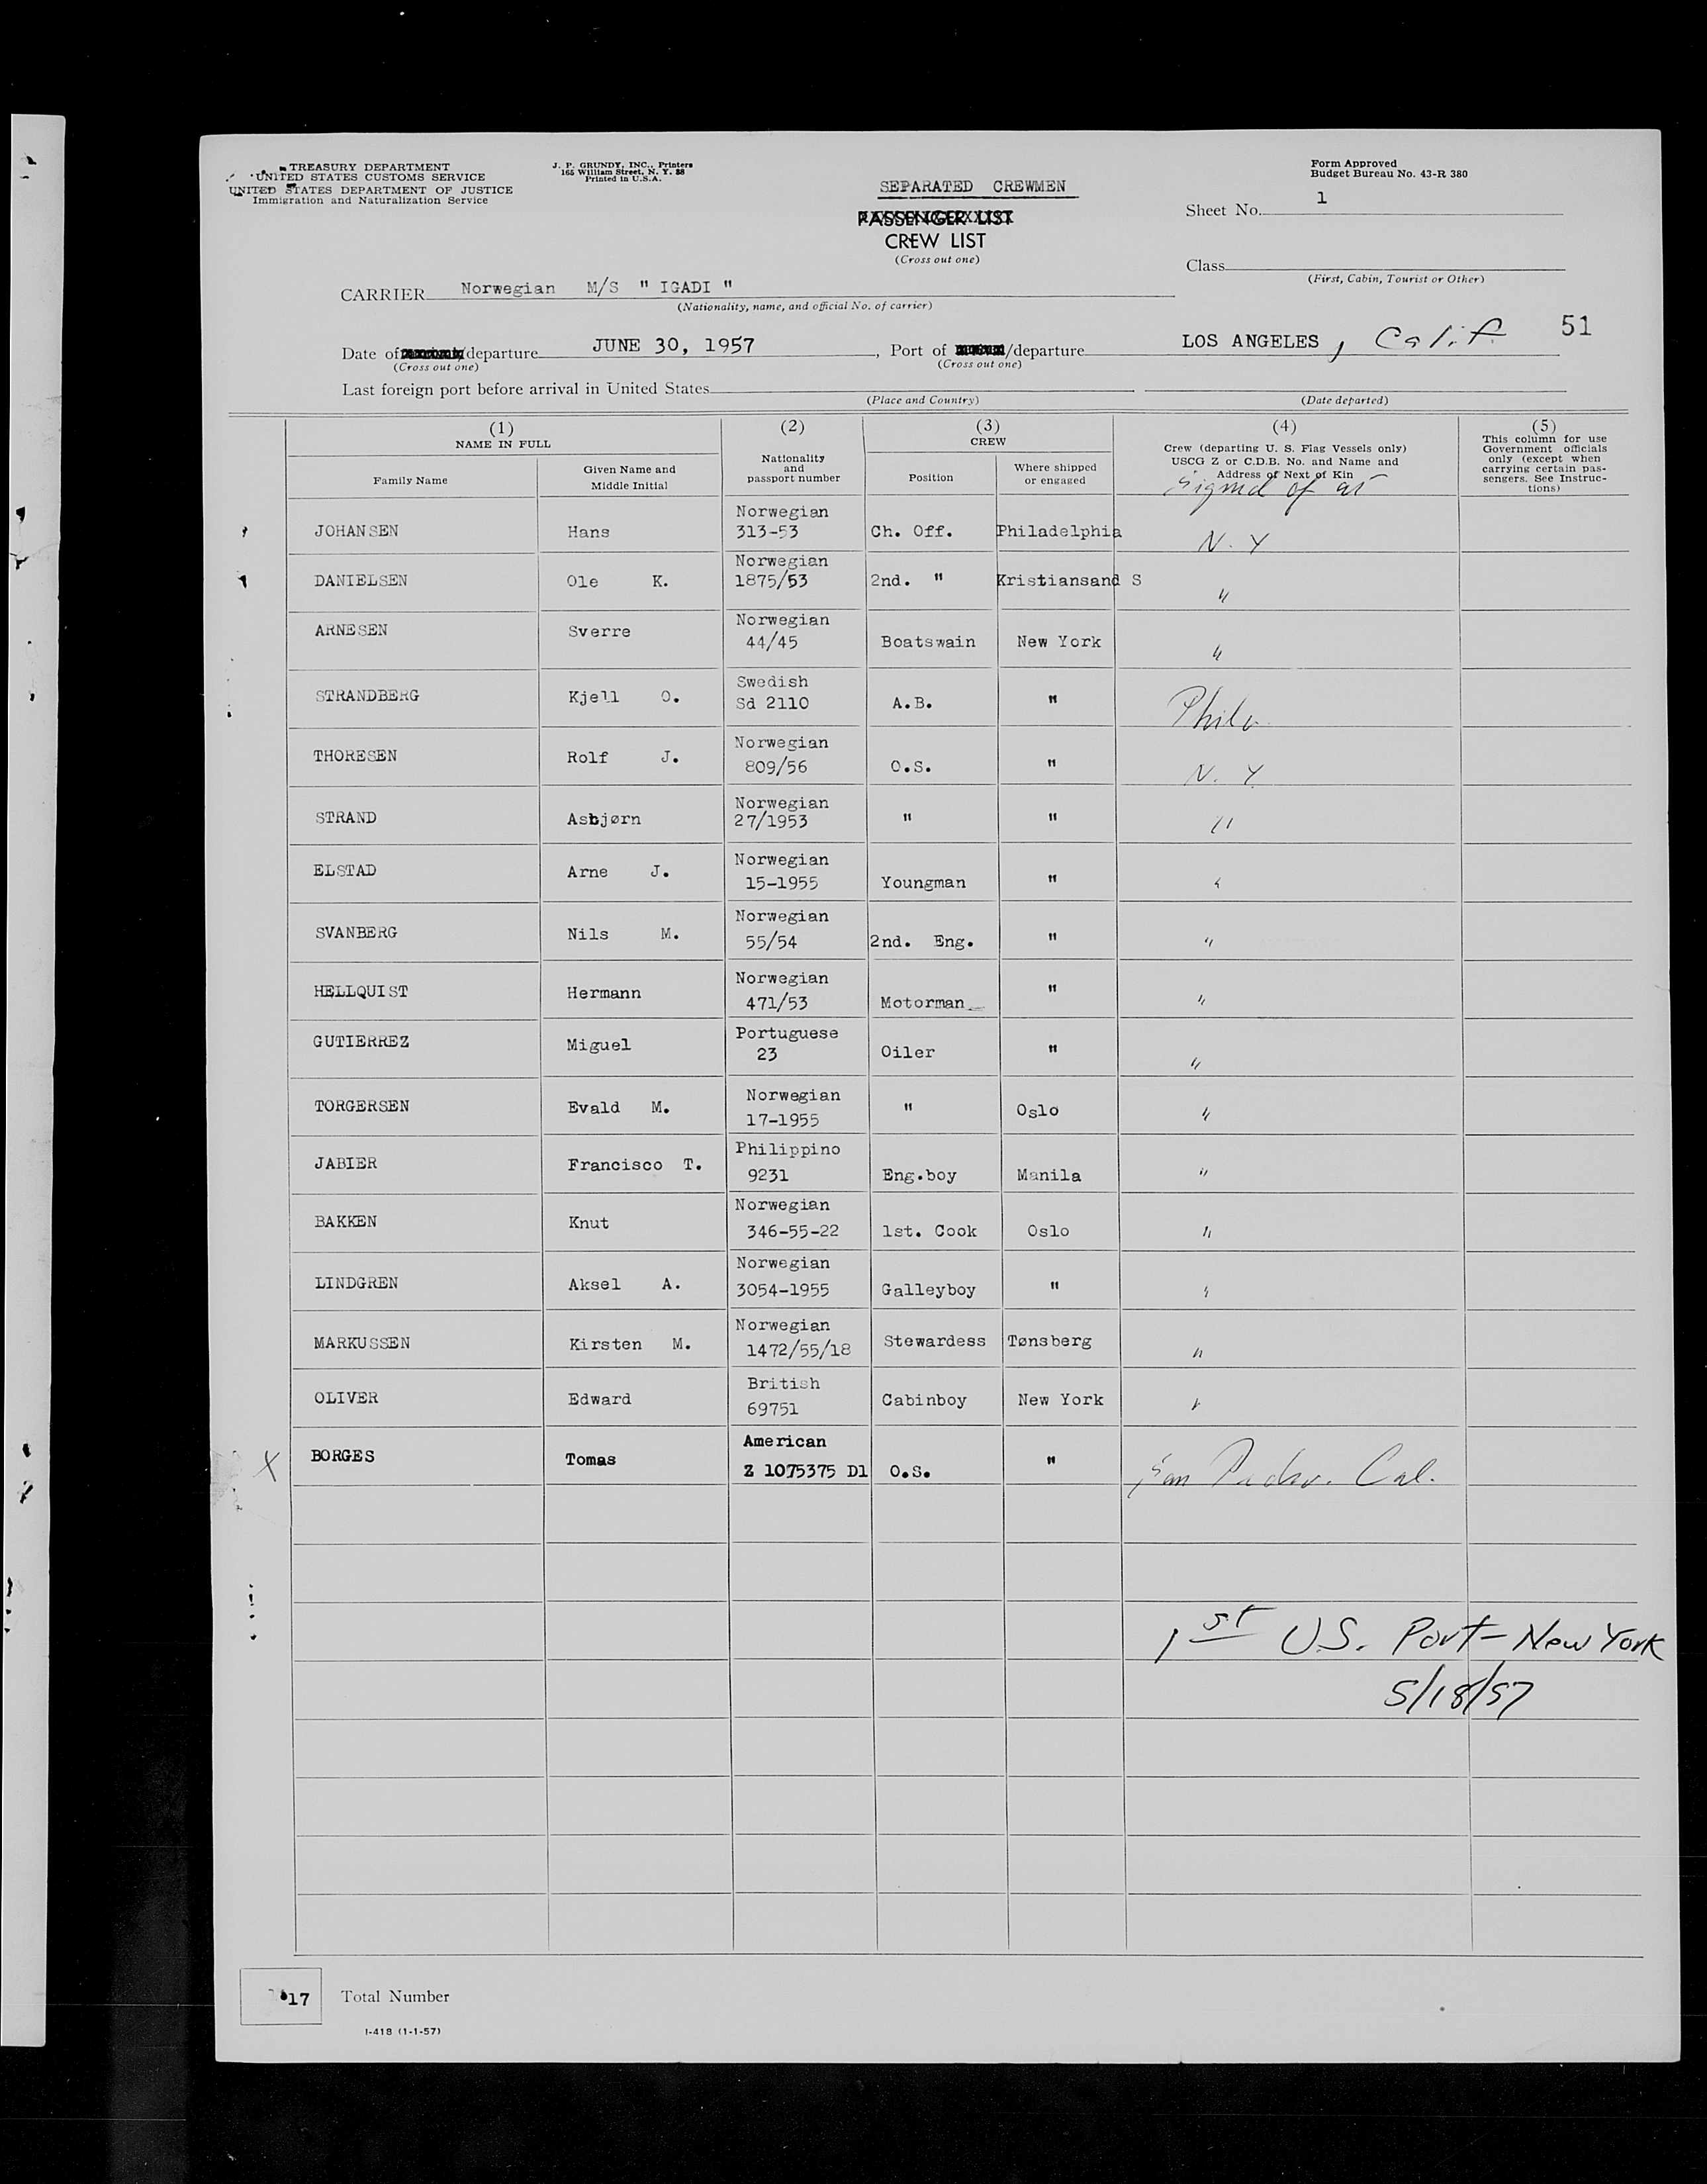 TREASURY DEPARTMENT
UNITED STATES CUSTOMS SERVICE
UNITED STATES DEPARTMENT OF JUSTICE
Immigration and Naturalization Service
J. P. GRUNDY, INC., Printers
165 William Street, N. Y. 38
Printed in U.S.A.
SEPARATED CREWMEN
PASSENGER LIST
CREW LIST
(Cross out one)
Form Approved
Budget Bureau No. 43-R 380
Sheet No. 1
Class
(First, Cabin, Tourist or Other)
CARRIER Norwegian M/S " IGADI "
(Nationality, name, and official No. of carrier)
Date of /departure JUNE 30, 1957, Port of /departure LOS ANGELES, Calif. 51
(Cross out one) (Cross out one)
Last foreign port before arrival in United States
(Place and Country) (Date departed)
(1) NAME IN FULL (2) Nationality and passport number (3) CREW (4) Crew (departing U. S. Flag Vessels only) USCG Z or C.D.B. No. and Name and Address of Next of Kin (5) This column for use Government officials only (except when carrying certain passengers. See Instructions)
Family Name Given Name and Middle Initial Position Where shipped or engaged Signed of at
JOHANSEN Hans Norwegian 313-53 Ch. Off. Philadelphia N. Y
DANIELSEN Ole K. Norwegian 1875/53 2nd. " Kristiansand S "
ARNESEN Sverre Norwegian 44/45 Boatswain New York "
STRANDBERG Kjell O. Swedish Sd 2110 A.B. " Phila
THORESEN Rolf J. Norwegian 809/56 O.S. " N. Y.
STRAND Asbjørn Norwegian 27/1953 " " "
ELSTAD Arne J. Norwegian 15-1955 Youngman " "
SVANBERG Nils M. Norwegian 55/54 2nd. Eng. " "
HELLQUIST Hermann Norwegian 471/53 Motorman " "
GUTIERREZ Miguel Portuguese 23 Oiler " "
TORGERSEN Evald M. Norwegian 17-1955 " Oslo "
JABIER Francisco T. Philippino 9231 Eng.boy Manila "
BAKKEN Knut Norwegian 346-55-22 1st. Cook Oslo "
LINDGREN Aksel A. Norwegian 3054-1955 Galleyboy " "
MARKUSSEN Kirsten M. Norwegian 1472/55/18 Stewardess Tønsberg "
OLIVER Edward British 69751 Cabinboy New York "
X BORGES Tomas American Z 1075375 D1 O.S. " San Pedro. Cal.
1st U.S. Port - New York
5/18/57
17 Total Number
I-418 (1-1-57)